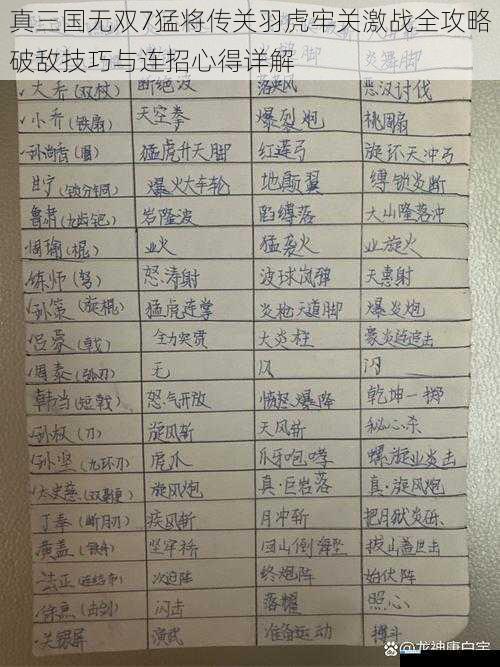 真三国无双7猛将传关羽虎牢关激战全攻略
破敌技巧与连招心得详解
大乔(双杖) 断绝波 落英风 恶汉讨伐
小乔(铁扇) 天空拳 爆裂炮 桃周扇
孙尚香(圈) 猛虎升天脚 红莲弓 旋环天冲弓
甘宁(锁分铜) 爆火大车轮 地颠翼 缚锁炎断
鲁肃(九齿钯) 岩隆波 陷缚落 大山隆落冲
周瑜(棍) 业火 猛袭火 业旋火
练师(弩) 怒涛射 波球岚弹 天惠射
孙策(旋棍) 猛虎连掌 炎枪天道脚 爆炎炮
吕蒙(戟) 全力突贯 大炎柱 豪炎连追击
周泰(弧刀) 无 风 闪
韩当(短戟) 怒气开放 愤怒爆降 乾坤一掷
孙权(刀) 旋风斩 天风斩 秘心杀
孙坚(九环刀) 虎爪 爪牙咆哮 螺旋业炎击
太史慈(双鞭) 旋风炮 真·巨岩落 真·旋风炮
丁奉(断月刃) 疾风斩 月冲斩 把月狱炎砾
黄盖(铁舟) 坚牢 回山倒海 拔山盖世击
法正(连结布) 次迫阵 终炮阵 始伏阵
徐庶(击剑) 闪击 落耀 照心
关银屏 演武 准备运动 搏斗
龙神康白宇